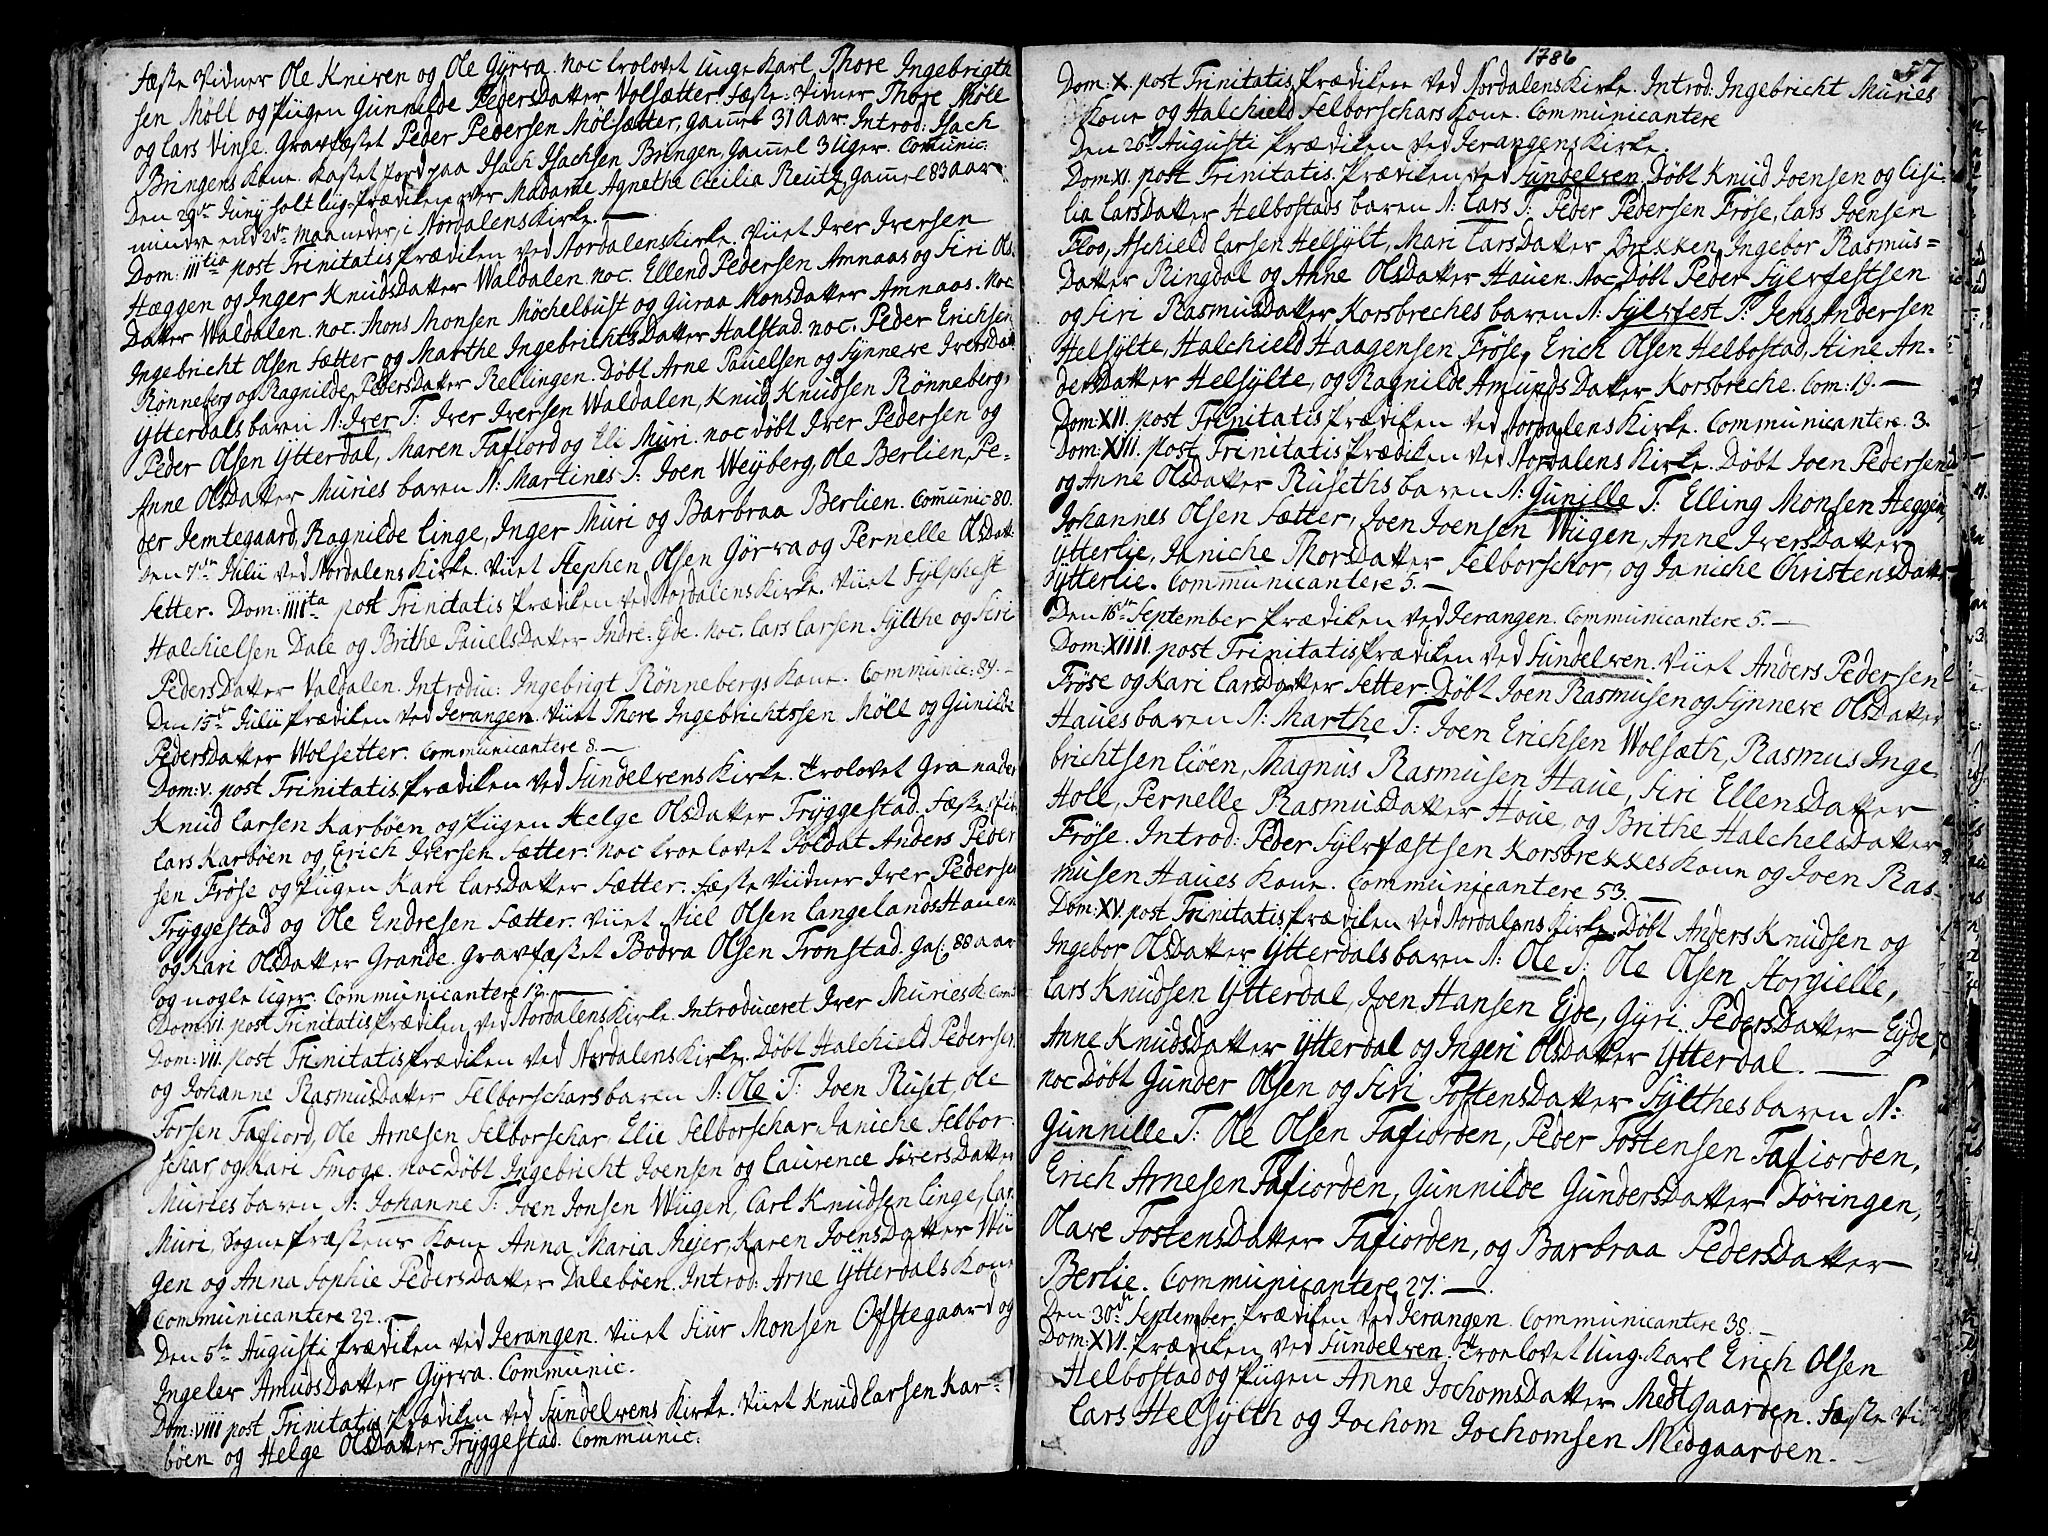 Fæste Vidner Ole Kniven og Ole Gyrra. noc trolovet Unge Karl Thore Ingebrigth
sen Möll og Pigen Gunnilde PedersDatter Volsætter. Fæste: Vidner Thore Möll
og Lars Vinse. Gravfæstet Peder Pedersen Mölsætter, gamel 31 Aar. Introd: Isach
Bringens Kone. Kastet Jord paa Isach Isachsen Bringen, Gamel 3 Uger. Comunic.
Den 29de Junij holt liig Prædiken over Madame Agnethe Cecilia Reutz gamel 83 aar
mindre end 2de Maaneder, i Nordalens Kirke.
Dom: IIItia post Trinitatis Prædiken ved Nordalens Kirke. Viiet Iver Iversen
Hæggen og Inger KnudsDatter Waldalen. noc. Ellend Pedersen Amnaas og Siri Ols
Datter Waldalen. noc. Mons Monsen Möchelbust og Guraa MonsDatter Amnaas. Noc
Ingebricht Olsen Sætter og Marthe IngebrichtsDatter Halstad. noc. Peder Erichsen
Rønneberg og Ragnilde PedersDatter Rellingen. Döbt Arne Pauelsen og Synneve IversDatt
Ytterdals baren N: Iver T: Iver Iversen Waldalen, Knud Knudsen Rønneberg,
Peder Olsen Ytterdal, Maren Tafiord og Eli Muri. noc döbt Iver Pedersen og
Anne OlsDatter Muries baren N: Martines T: Joen Weyberg, Ole Berlien, Pe-
der Jemtegaard, Ragnilde Linge, Inger Muri og Barbraa Berlien. Comunic 80.
Den 7de Julii ved Nordalens Kirke. Viiet Stephen Olsen Görra og Pernelle OlsDatt.
Setter. Dom: IIIIta post Trinitatis Prædiken ved Nordalens Kirke. Viiet Sylphest
Halchielsen Dale og Brithe PauelsDatter Indre: Ede. noc. Lars Larsen Sylthe og Siri
PedersDatter Valdalen. Introduc: Ingebrigt Rønnebergs Kone. Communic: 89.
Den 15de Julii Prædiken ved Jerangen. Viiet Thore Ingebrichtssen Möll og Gunilde
PedersDatter Wolsetter. Communicantere 8.
Dom: V. post Trinitatis. Prædiken ved Sundelvens Kirke. Trolovet Granader
Knud Larsen Karböen og Pigen Helge OlsDatter Tryggestad. Fæste: Vid
Lars Karböen og Erich Iversen Sætter. noc troelovet Soldat Anders Peder
sen Fröse og Pigen Kari LarsDatter Sætter. Fæste Vidner Iver Pedersen
Tryggestad og Ole Endresen Sætter. Viiet Niel Olsen Langelands Hauen
og Kari OlsDatter Grande. Gravfæstet Bodva Olsen Tronstad. Ga: 88 aar
og nogle Uger. Communicantere 12.
Dom: VI. post Trinitatis Prædiken ved Nordalens Kirke. Introduceret Iver Muries K. Com
Dom: VII. post Trinitatis Prædiken ved Nordalens Kirke. Döbt Halchield Pedersen
og Johanne RasmusDatter Selborschars baren N: Ole T: Joen Ruset, Ole
Torsen Tafiord, Ole Arnesen Selborschar, Elie Selborschar, Janiche Selbor-
schar og Kari Smoge. noc Döbt Ingebricht Joensen og Laurence SiversDatter
Muries baren N: Johanne T: Joen Jonsen Wiigen, Carl Knudsen Linge, Lars
Muri, Sogne Præstens Kone Anna Maria Mejer, Karen JoensDatter Wii
gen og Anna Sophie PedersDatter Daleböen. Introd: Arne Ytterdals Kone
Communicantere 22.
Den 5te Augusti Prædiken ved Jerangen. Viiet Siur Monsen Ofstegaard og
Ingeler AmundsDatter Gyrra. Communic.
Dom: VIII post Trinitatis Prædiken ved Sundelvens Kirke. Viiet Knud Larsen Kar-
böen og Helge OlsDatter Tryggestad. Communic.
1786
57
Dom: X. post Trinitatis Prædiken ved Nordalens Kirke. Introd: Ingebricht Muries
Kone og Halchield Selborschars Kone. Communicantere
Den 26de Augusti Prædiken ved Jerangens Kirke.
Dom: XI. post Trinitatis. Prædiken ved Sundelven. Döbt Knud Joensen og Cisi-
lia LarsDatter Helbostads baren N: Lars T: Peder Pedersen Fröse, Lars Joensen
Floo, Aschield Larsen Helsylt, Mari LarsDatter Brekken, Ingebor Rasmus=
Datter Ringdal og Anne OlsDatter Hauen. Noc Döbt Peder Sylvfestsen
og Siri RasmusDatter Korsbreches baren N: Sylvfest T: Jens Andersen
Helsylte, Halchield Haagensen Fröse, Erich Olsen Helbostad, Stine An-
dersDatter Helsylte, og Ragnilde AmundsDatter Korsbreche. Com: 19.
Dom: XII. post Trinitatis Prædiken ved Nordalens Kirke. Communicantere. 3.
Dom: XIII. post Trinitatis Prædiken ved Nordalens Kirke. Döbt Joen Pedersen
og Anne OlsDatter Ruseths baren N: Gunille T: Elling Monsen Heggen,
Johannes Olsen Sætter, Joen Joensen Wiigen, Anne IversDatter
Ytterlie, Janiche ThorsDatter Selborschor, og Janiche ChristensDatter
Ytterlie. Communicantere 5.
Den 16de September Prædiken ved Jerangen. Communicantere 5.
Dom: XIIII. post Trinitatis Prædiken ved Sundelven. Viiet Anders Pedersen
Fröse og Kari LarsDatter Setter. Döbt Joen Rasmusen og Synneve OlsDatter
Haues baren N: Marthe T: Joen Erichsen Wolsæth, Rasmus Inge
brichtsen Liöen, Magnus Rasmusen Haue, Siri EllensDatter
Holl, Pernelle RasmusDatter Houe, og Brithe HalchelsDatter
Fröse. Introd: Peder Sylvfæstsen Korsbrekkes Kone og Joen Ras-
musen Haues Kone. Communicantere 53.
Dom: XV. post Trinitatis Prædiken ved Nordalens Kirke. Döbt Anders Knudsen og
Ingebor OlsDatter Ytterdals baren N: Ole T: Ole Olsen Storgielle,
Lars Knudsen Ytterdal, Joen Hansen Ejde, Gyri PedersDatter Eyde,
Anne KnudsDatter Ytterdal og Ingeri OlsDatter Ytterdal.
noc Döbt Gunder Olsen og Siri TostensDatter Sylthes baren N:
Gunnille T: Ole Olsen Tafiorden, Peder Tostensen Tafiorden,
Erich Arnesen Tafiorden, Gunnilde GundersDatter Döringen,
Olave TostensDatter Tafiorden, og Barbraa PedersDatter
Berlie. Communicantere 27.
Den 30de September Prædiken ved Jerangen. Communicantere 38.
Dom: XVI. Prædiken ved Sundelven. Troelovet Ung Karl Erich Olsen
Helbostad og Pigen Anne JochomsDatter Medtgaarden. Fæste Vid
Lars Helsylth og Jochom Jochomsen Medgaarden.